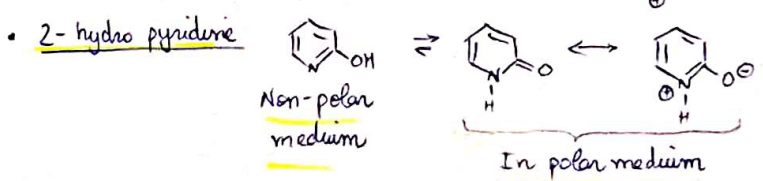 • 2-hydro pyridine
N OH ⇌ N H O ↔ ⊕ N H O ⊖
⊕
Non-polar
medium
In polar medium